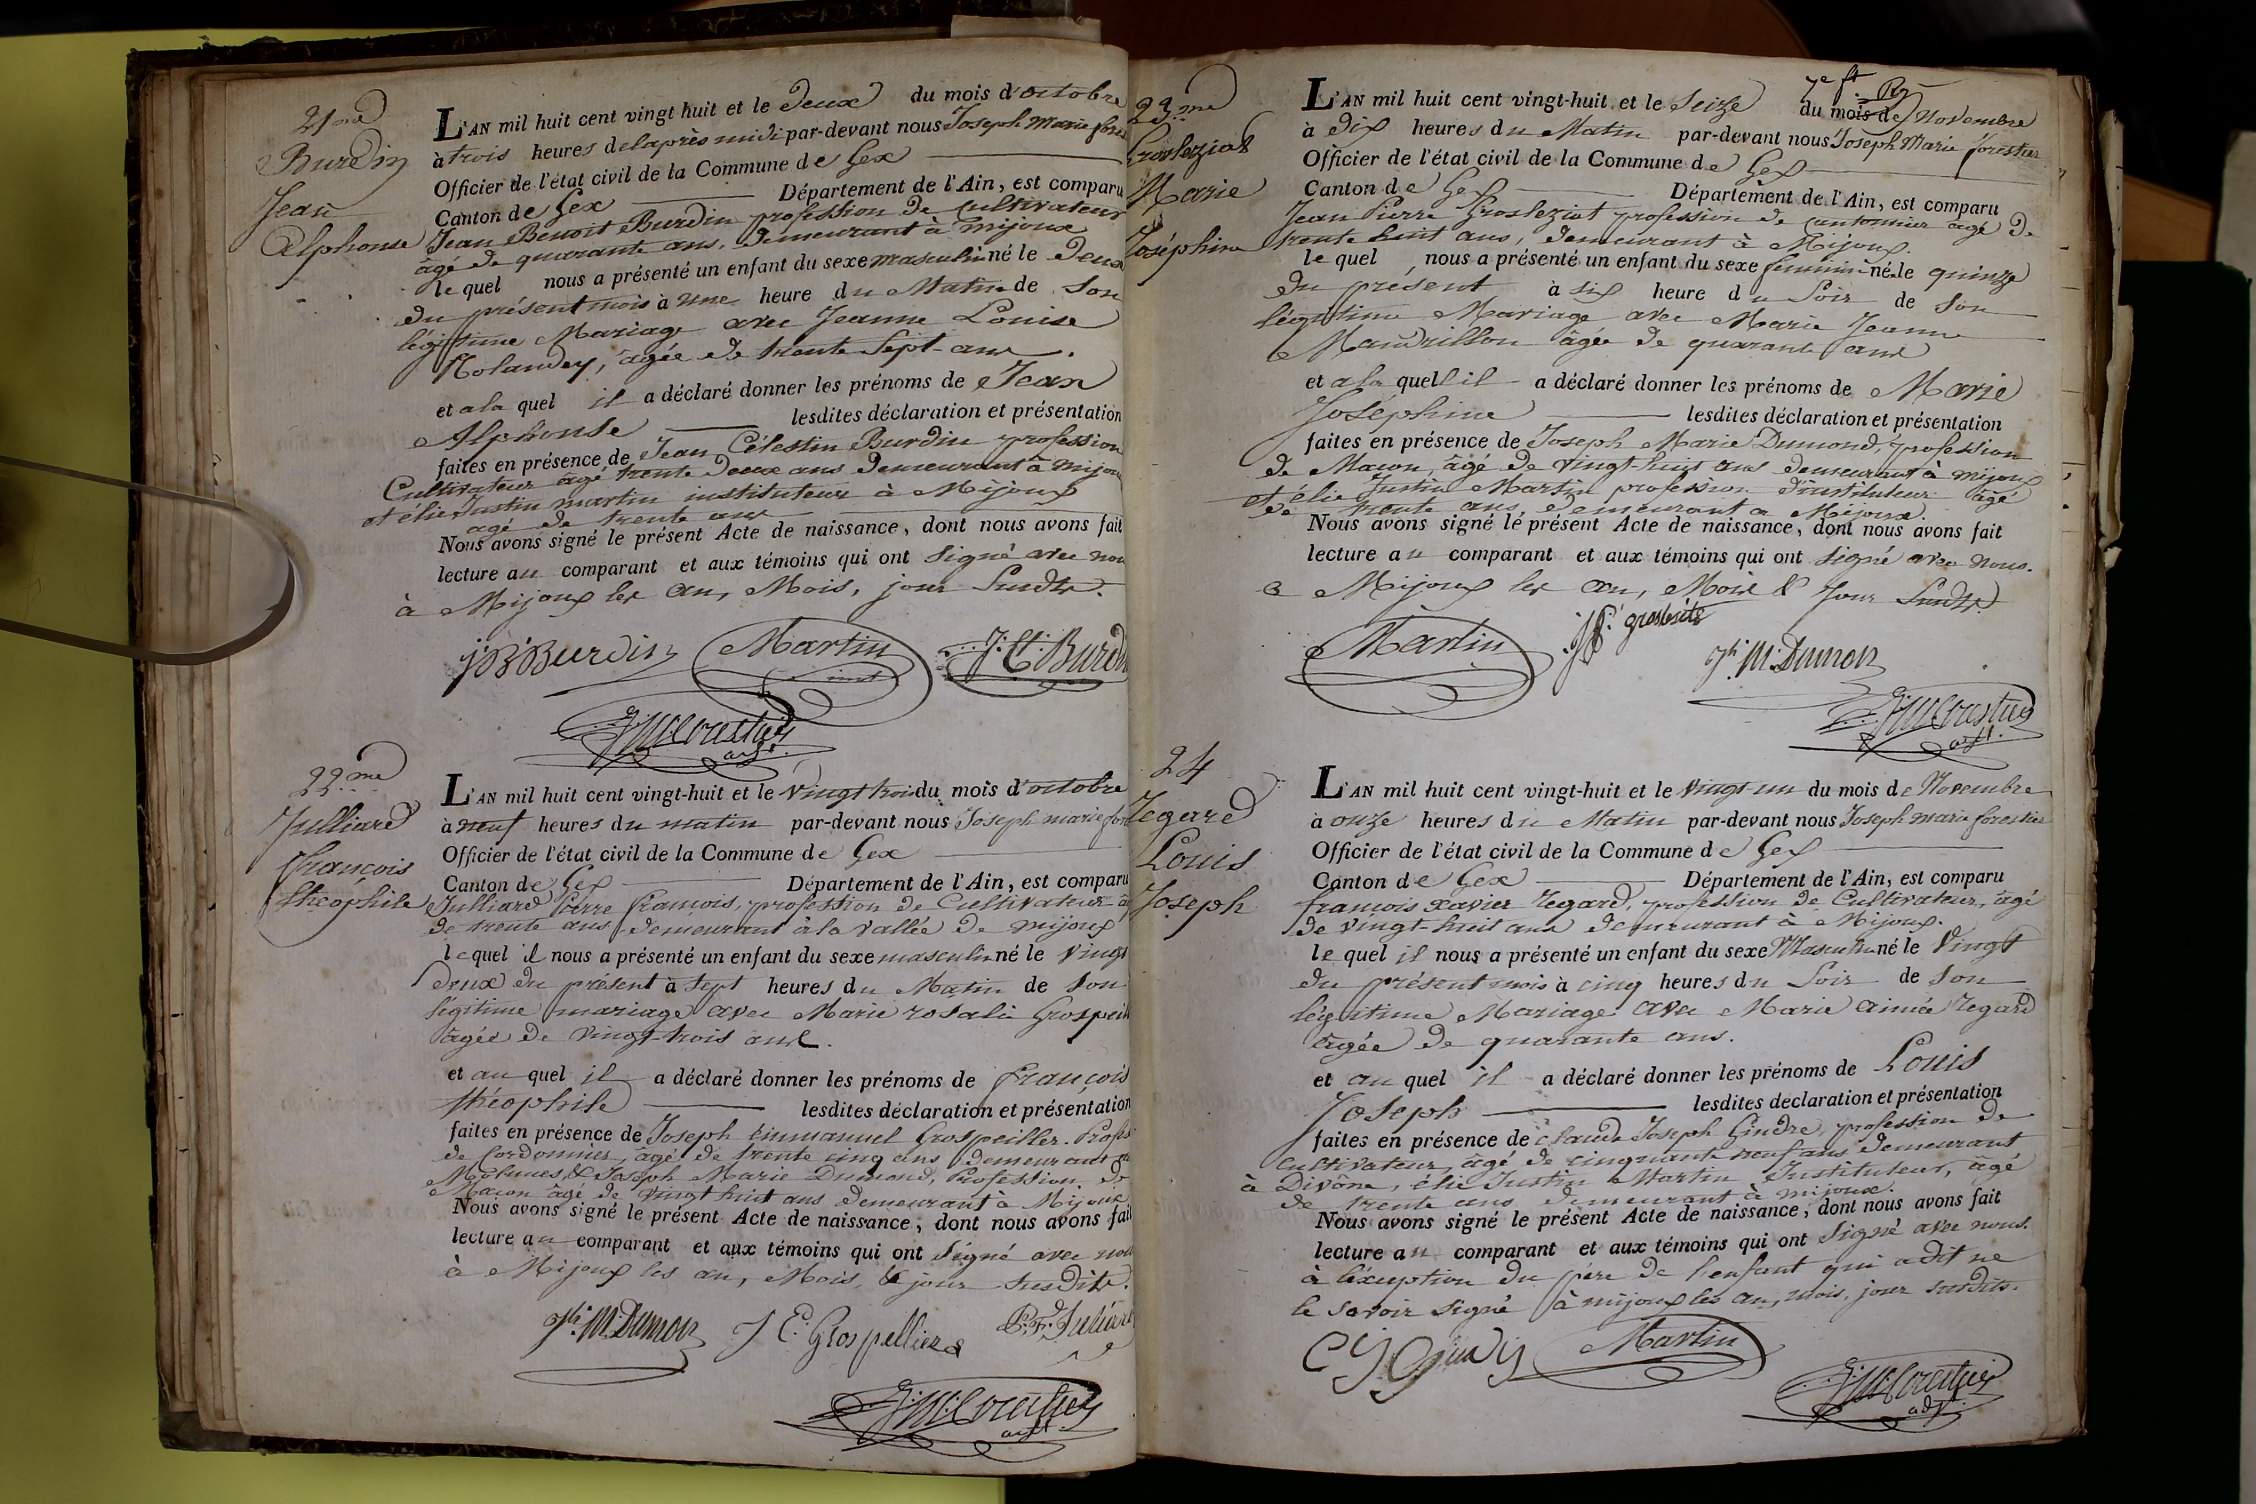 21me
Burdin
Jean
Alphonse
L'AN mil huit cent vingt huit et le Deux du mois d'octobre
à trois heures de l'après midi par-devant nous Joseph Marie fores
Officier de l'état civil de la Commune de Gex
Canton de Gex Département de l'Ain, est comparu
Jean Benoit Burdin profession de Cultivateur
âgé de quarante ans, demeurant à mijoux
le quel nous a présenté un enfant du sexe masculin né le Deux
du présent mois à une heure du Matin de Son
légitime Mariage avec Jeanne Louise
Rolandez, âgée de trente Sept ans.
et a la quel il a déclaré donner les prénoms de Jean
Alphonse lesdites déclaration et présentation
faites en présence de Jean Célestin Burdin profession
Cultivateur âgé trente deux ans demeurant à Mijoux
et élie Justin Martin instituteur à Mijoux
âgé de trente ans
Nous avons signé le présent Acte de naissance, dont nous avons fait
lecture au comparant et aux témoins qui ont Signé avec nou
à Mijoux les an, Mois, jour Susdits.
J B Burdin Martin J. C. Burdin
J M forestier
adjt.
22.me
Julliard
François
théophile
L'AN mil huit cent vingt-huit et le vingt trois du mois d'octobre
à neuf heures du matin par-devant nous Joseph marie for
Officier de l'état civil de la Commune de Gex
Canton de Gex Département de l'Ain, est comparu
Julliard Pierre François, profession de Cultivateur â
de trente ans demeurant à la vallée de mijoux
le quel il nous a présenté un enfant du sexe masculin né le Vingt
Deux du présent à Sept heures du Matin de Son
légitime mariage avec Marie rosalie Grospeill
âgée de vingt-trois ans.
et au quel il a déclaré donner les prénoms de François
théophile lesdites déclaration et présentation
faites en présence de Joseph Emmanuel Grospeiller. Profes
de Cordonnier, âgé de trente cinq ans demeurant
Molunes, & Joseph Marie Dumond, Profession de
Macon âgé de vingt huit ans demeurant à Mijoux
Nous avons signé le présent Acte de naissance, dont nous avons fait
lecture au comparant et aux témoins qui ont Signé avec nou
à Mijoux les an, Mois, & jour Susdits.
Jh. M. Dumon J E. Grospellier P. F. Juliard
J M forestier
adjt.
23.me
Grosleziat
Marie
Joséphine
L'AN mil huit cent vingt-huit et le Seize du mois de Novembre
à Dix heures du Matin par-devant nous Joseph Marie forestier
Officier de l'état civil de la Commune de Gex
Canton de Gex Département de l'Ain, est comparu
Jean Pierre Grosleziat profession de Cantonnier âgé de
trente huit ans, demeurant à Mijoux.
le quel nous a présenté un enfant du sexe féminin né le quinze
du présent à six heure du Soir de Son
légitime Mariage avec Marie Jeanne
Mandrillon âgée de quarante ans
et a la quelle il a déclaré donner les prénoms de Marie
Joséphine lesdites déclaration et présentation
faites en présence de Joseph Marie Dumond, profession
de Macon, âgé de vingt-huit ans demeurant à mijoux
et élie Justin Martin profession d'instituteur âgé
de trente ans, demeurant a Mijoux.
Nous avons signé le présent Acte de naissance, dont nous avons fait
lecture au comparant et aux témoins qui ont signé avec nous.
a Mijoux les an, Mois & Jour Susdits
Martin Jh. M. Dumon
J M forestier
adjt.
24
Regard
Louis
Joseph
L'AN mil huit cent vingt-huit et le Vingt-un du mois de Novembre
à onze heures du Matin par-devant nous Joseph marie forestier
Officier de l'état civil de la Commune de Gex
Canton de Gex Département de l'Ain, est comparu
françois xavier Regard, profession de Cultivateur, âgé
de vingt-huit ans demeurant à Mijoux.
le quel il nous a présenté un enfant du sexe Masculin né le Vingt
du présent mois à cinq heures du Soir de Son
légitime Mariage avec Marie aimée Regard
âgée de quarante ans.
et au quel il a déclaré donner les prénoms de Louis
Joseph lesdites déclaration et présentation
faites en présence de Claude Joseph Gindre, profession de
Cultivateur, âgé de cinquante neuf ans demeurant
à Divonne, élie Justin Martin Instituteur, âgé
de trente ans demeurant à mijoux.
Nous avons signé le présent Acte de naissance, dont nous avons fait
lecture au comparant et aux témoins qui ont Signé avec nous.
à l'éxception du père de l'enfant qui a dit ne
le savoir signé à mijoux les an, mois, jour susdits.
Martin
J M forestier
adjt.